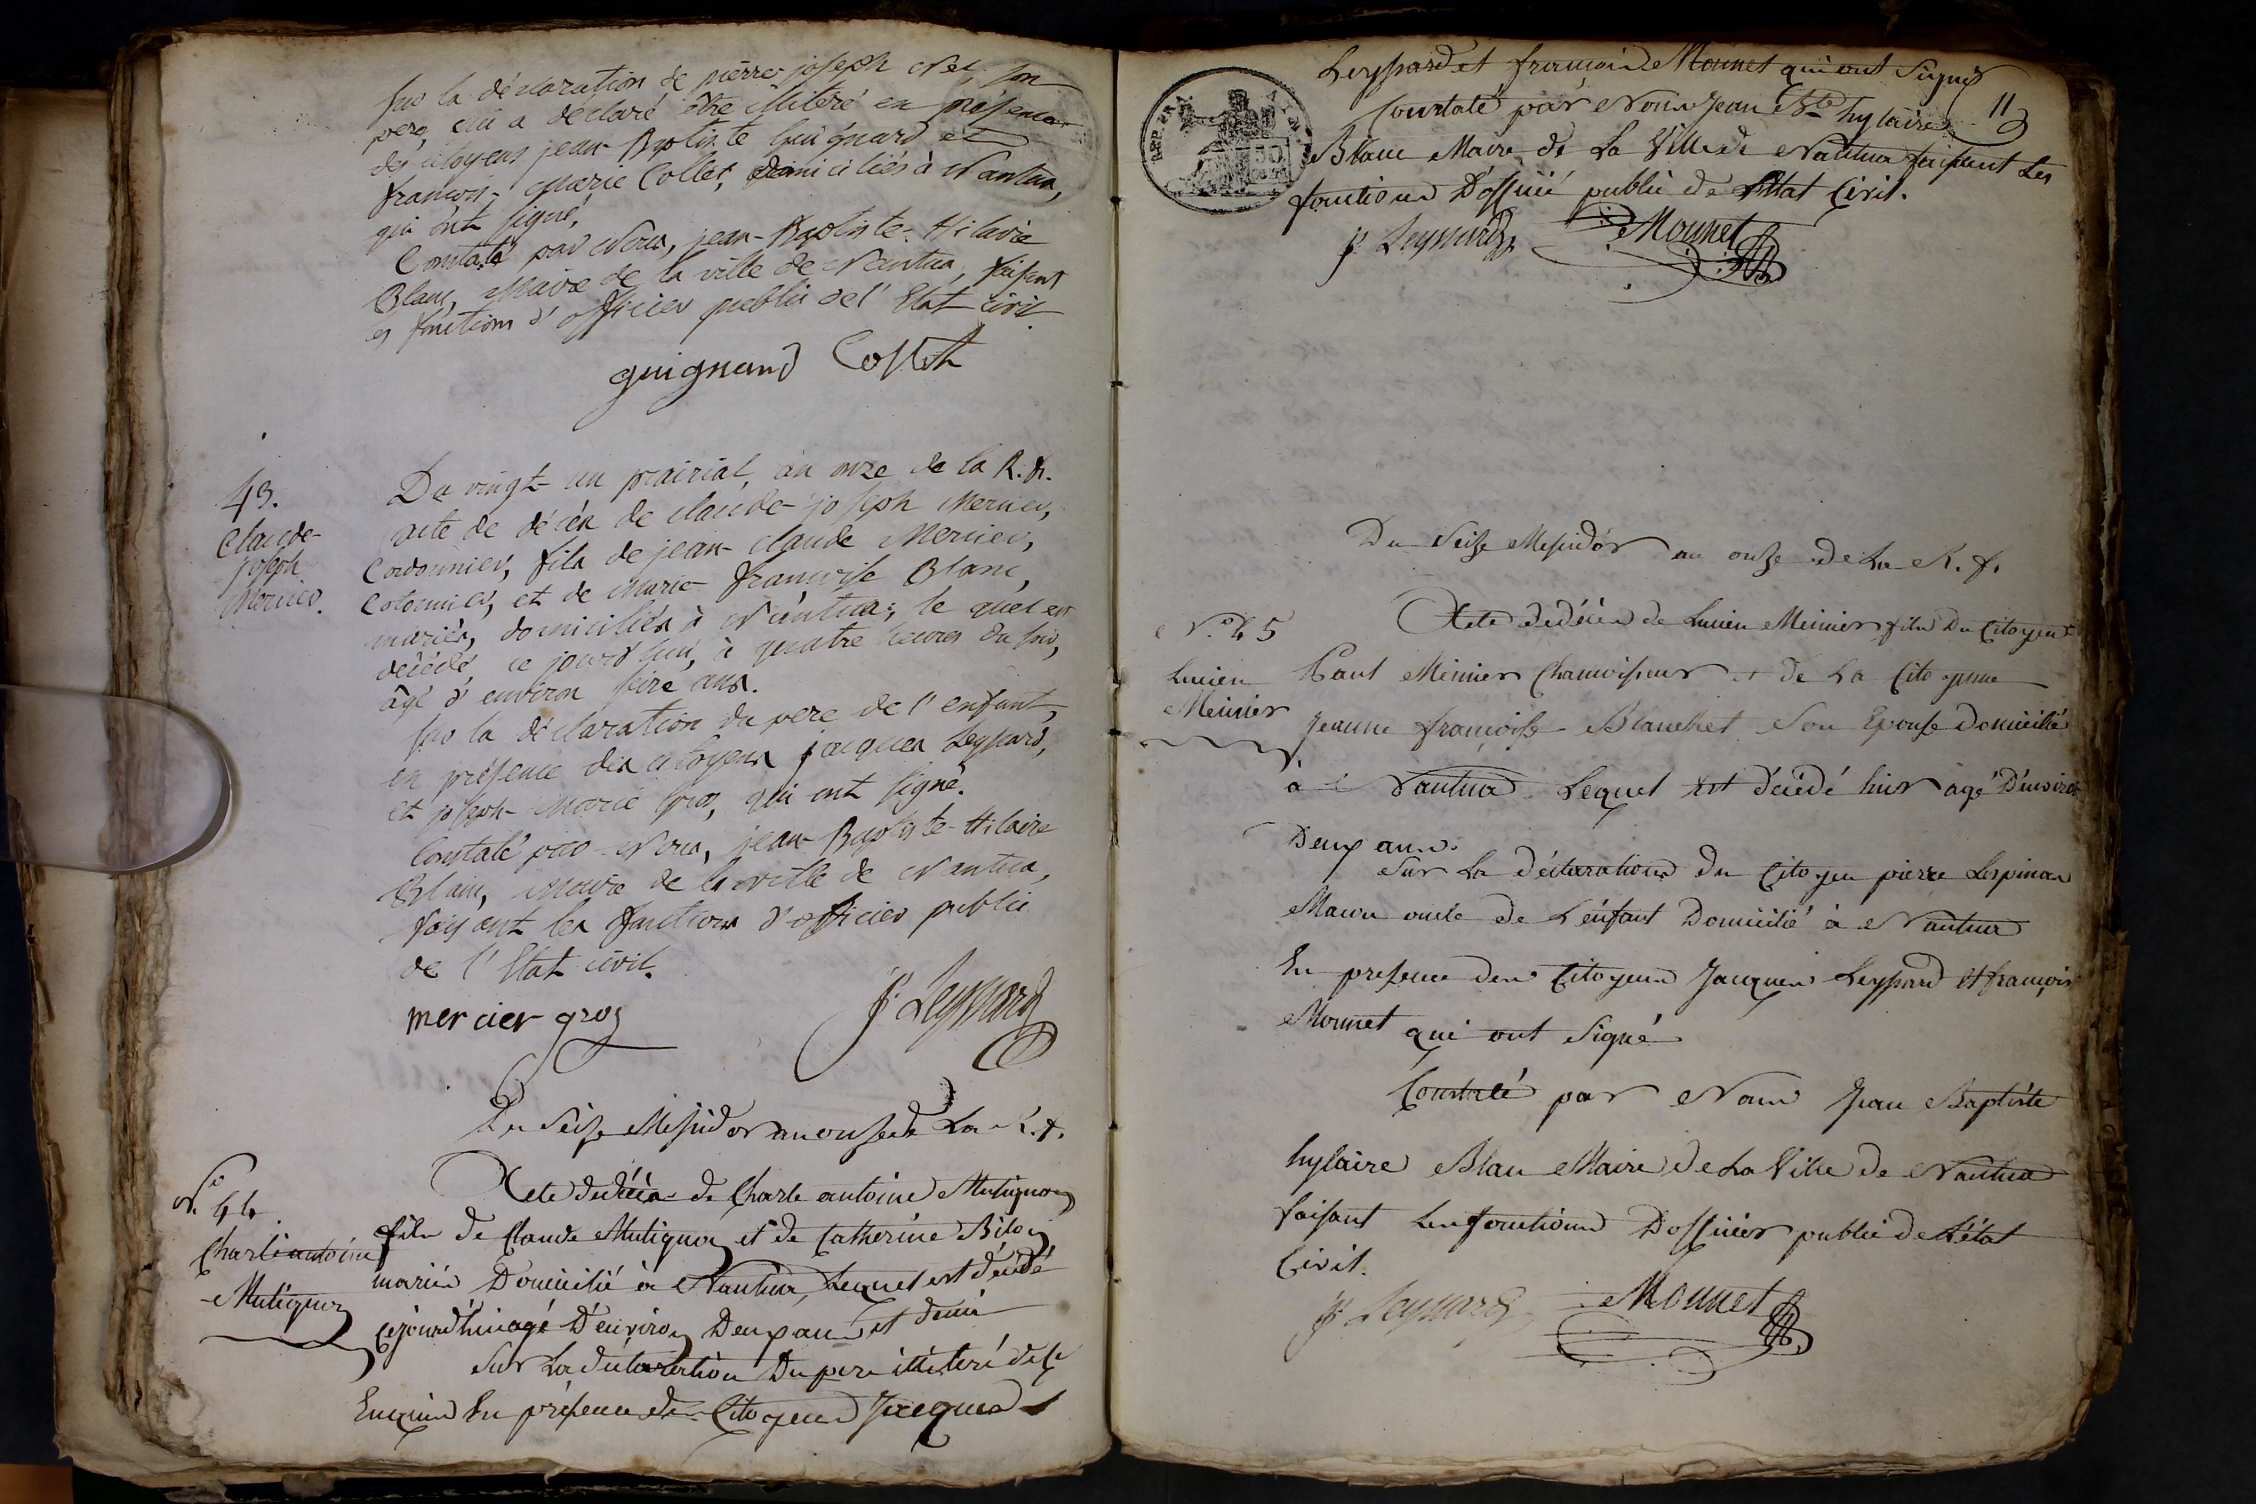 sur la déclaration de pierre joseph son
pere, qui a déclaré être illiteré en présence
des citoyens jean-Baptiste Guignard et
françois-Marie Collet, domiciliés à Nantua,
qui ont signé.
Constaté par Nous, jean-Baptiste-Hilaire
Blanc, Maire de la ville de Nantua, faisant
les fonctions d'officier public de l'Etat civil.
guignard Collet
43.
Claude-
joseph
Mercier.
Du vingt-un prairial, an onze de la R. f.
acte de décés de claude-joseph Mercier,
Cordonnier, fils de jean-claude Mercier,
Cordonnier, et de Marie-françoise Blanc,
mariés, domiciliés à Nantua; le quel est
décédé ce jourd'hui, à quatre heures du soir,
âgé d'environ seize ans.
sur la déclaration du pere de l'enfant,
en présence des citoyens jacques Leyssard,
et joseph-Marie gros, qui ont signé.
Constaté par Nous, jean-Baptiste-Hilaire
Blanc, Maire de la ville de Nantua,
faisant les fonctions d'officier public
de l'Etat civil.
mercier gros J. Leyssard
Du Seize Messidor an onze de La R. f.
N.o 44
Charle antoine
Mutignon
Acte de décés de Charle antoine Mutignon
fils de Claude Mutignon et de Catherine
mariés Domicilié à Nantua, Lequel est décédé
cejourd'hui agé D'environ Deux ans et demi
Sur La déclaration Du pere illiteré de ce
Enquis En présence des Citoyens Jacques
Leyssard et françois Mounet qui ont signé
11
Constaté par Nous Jean Bte hylaire
Blanc Maire de La Ville de Nantua faisant Les
fonctions D'officié public de L'Etat Civil.
J. Leyssard Mounet
REP. FRA.
Du Seize Messidor an onze de La R. f.
N.o 45
Lucien
Meinier
Acte de décés de Lucien Meinier fils Du Citoyen
Paul Meinier Chamoiseur et de La Citoyenne
Jeanne françoise Blanchet Son Epouse Domicilié
à Nantua Lequel est décédé hier agé D'environ
Deux ans.
Sur La déclaration du Citoyen pierre Lespinas
Macon oncle de L'enfant Domicilié à Nantua
En presence des Citoyens Jacques Leyssard et françois
Mounet qui ont Signé
Constaté par Nous Jean Baptiste
hylaire Blanc Maire de La Ville de Nantua
faisant Les fonctions D'officier public de L'état
Civil.
J. Leyssard Mounet